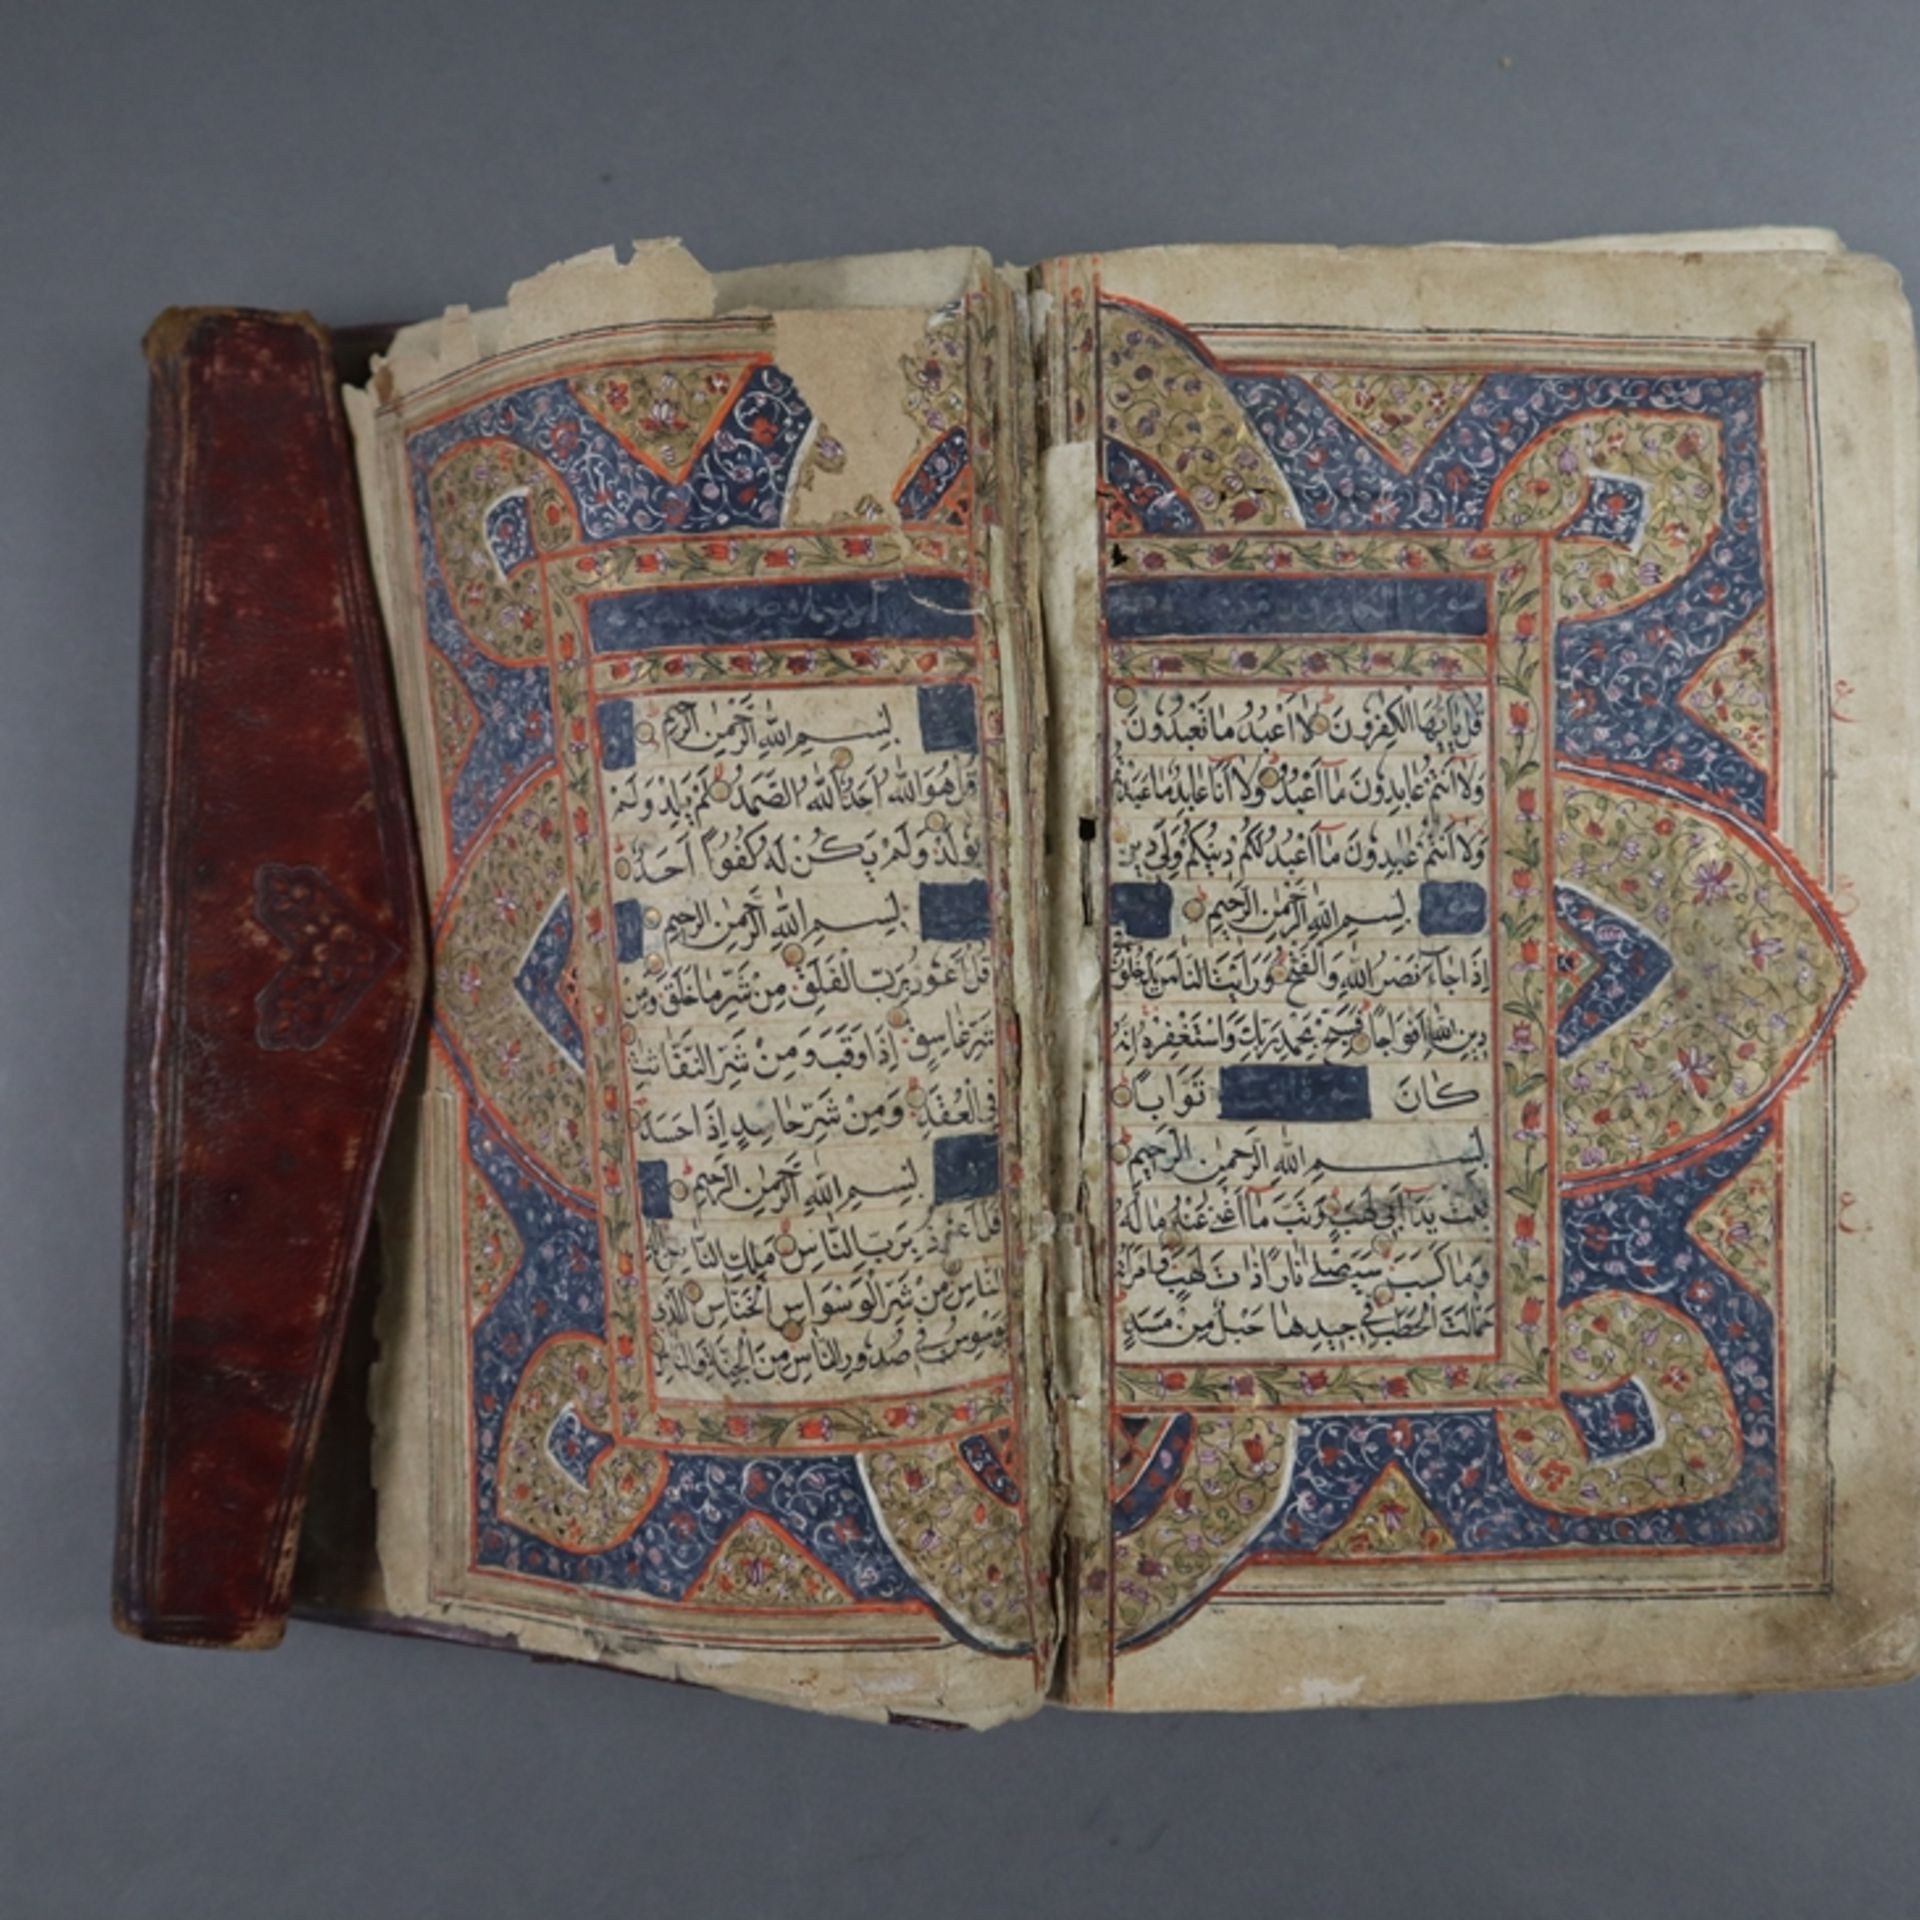 قل يا أيها الكفرون لا أعبد ما تعبدون
ولا أنتم عابدون ما أعبد ولا أنا عابد ما عبدتم
ولا أنتم عابدون ما أعبد لكم دينكم ولي دين
بسم الله الرحمن الرحيم
إذا جاء نصر الله والفتح ورأيت الناس يدخلون في
دين الله أفواجا فسبح بحمد ربك واستغفره إنه
كان توابا
بسم الله الرحمن الرحيم
تبت يدا أبي لهب وتب ما أغنى عنه ماله
وما كسب سيصلى نارا ذات لهب وامرأته
حمالة الحطب في جيدها حبل من مسد
بسم الله الرحمن الرحيم
قل هو الله أحد الله الصمد لم يلد ولم
يولد ولم يكن له كفوا أحد
بسم الله الرحمن الرحيم
قل أعوذ برب الفلق من شر ما خلق ومن
شر غاسق إذا وقب ومن شر النفاثات
في العقد ومن شر حاسد إذا حسد
بسم الله الرحمن الرحيم
قل أعوذ برب الناس ملك الناس إله
الناس من شر الوسواس الخناس الذي
يوسوس في صدور الناس من الجنة والناس